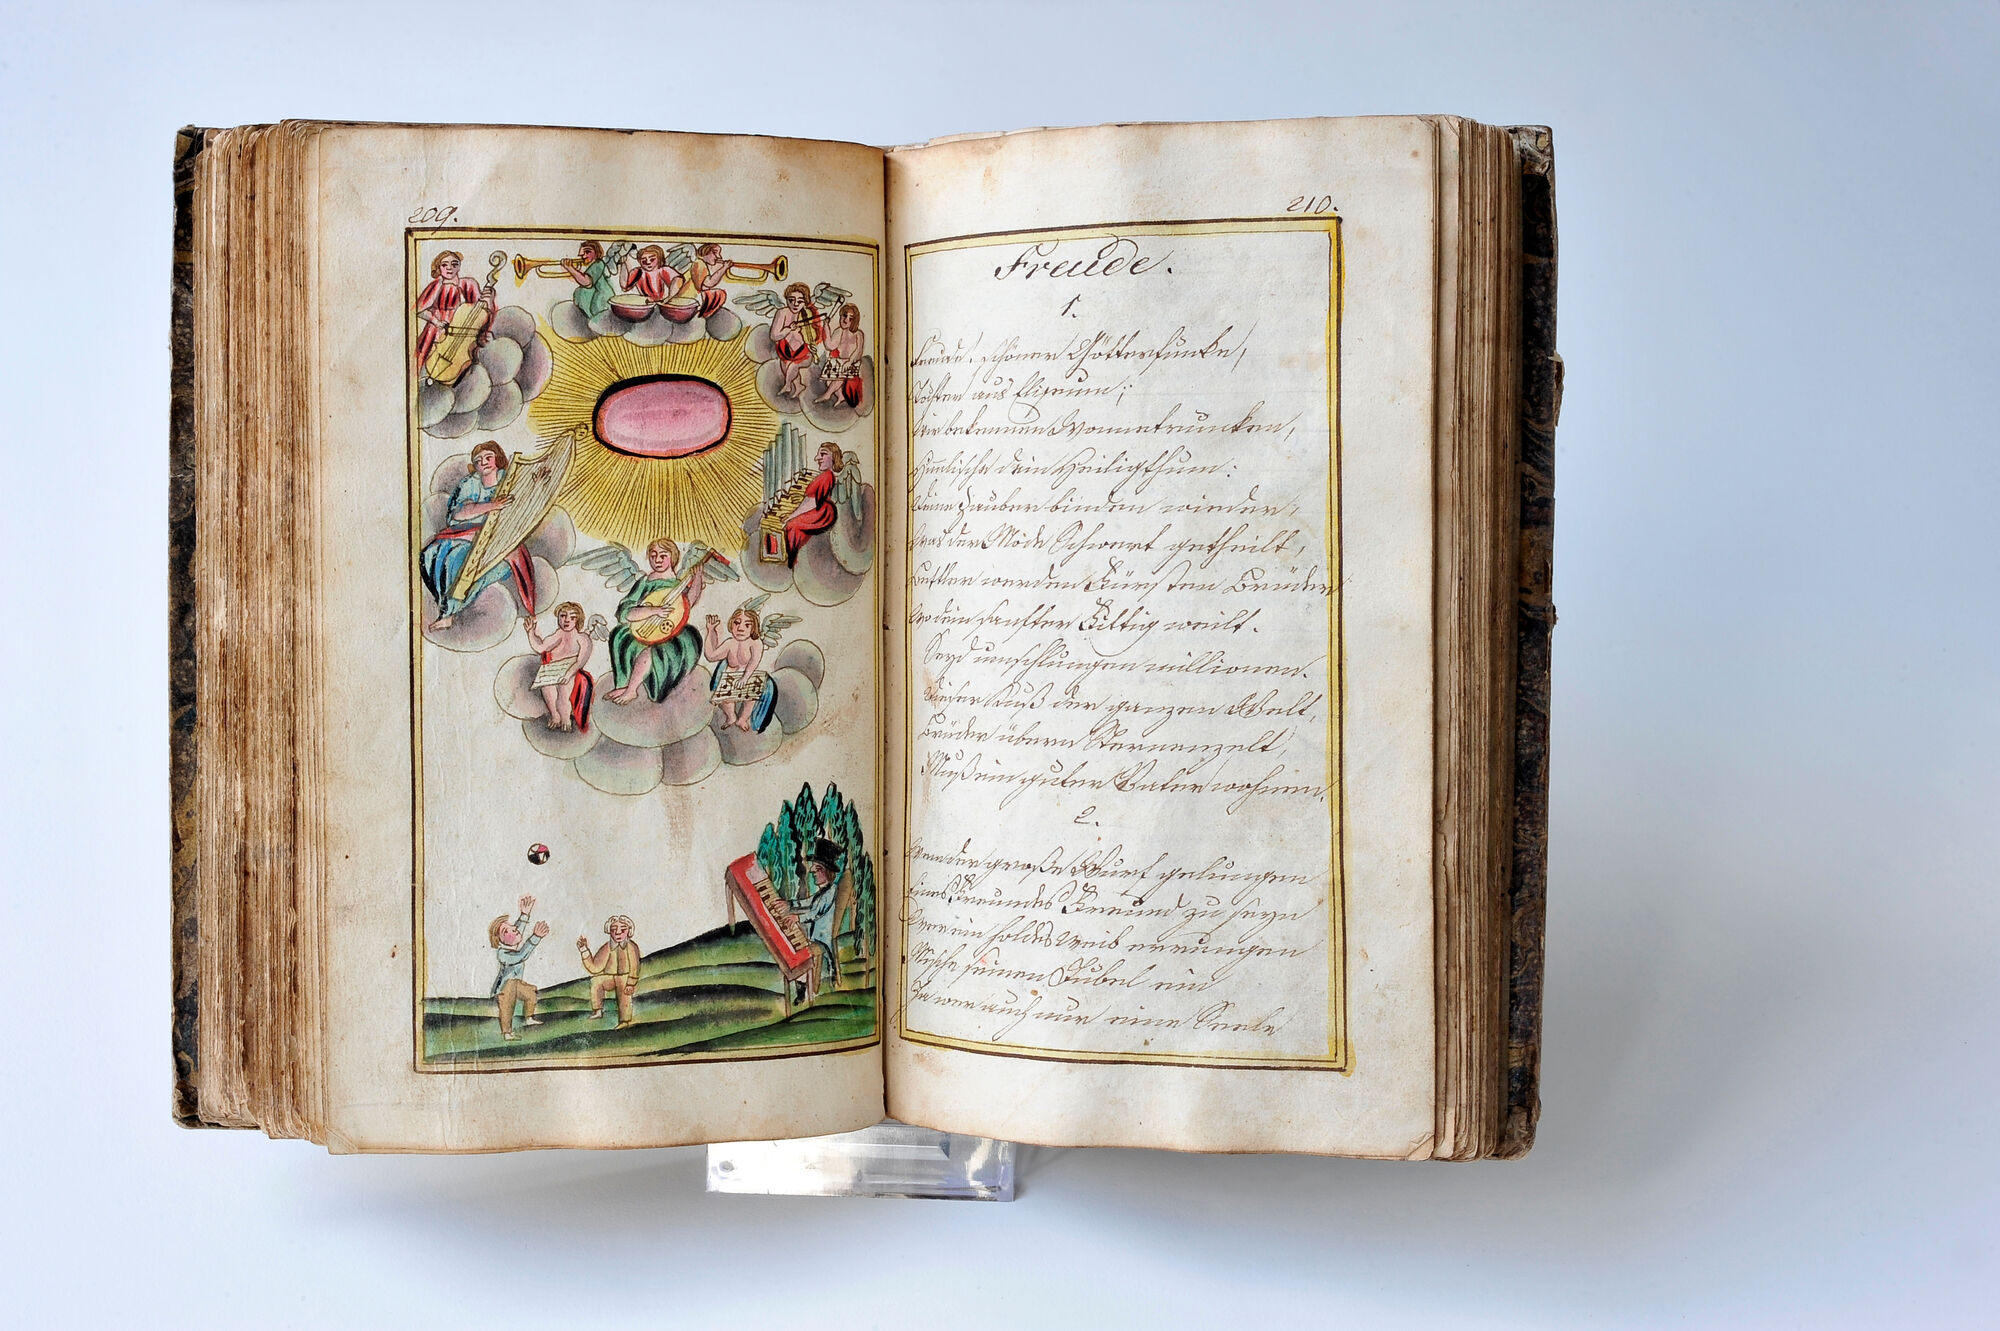 209.
210.
Freude.
1.
Freude, schöner Götterfunke,
Tochter aus Elisium;
Wir bekennen Wonnetrunken,
Himlische dein Heiligthum:
Deine Zauber binden wieder,
Was der Mode Schwert getheilt,
Bettler werden Fürsten Brüder
Wo dein sanfter Flittig weilt.
Seyd umschlungen millionen.
Dieser Kuß der ganzen Welt,
Brüder übern Sternenzelt,
Muß ein guter Vater wohnen.
2.
Wem der große Wurf gelungen
Eines Freundes Freund zu seyn
Wer ein holdes Weib errungen
Mische seinen Jubel ein
Ja wer auch nur eine Seele